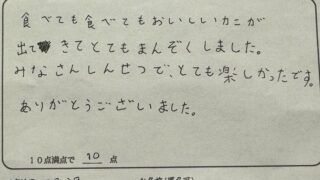 食べても食べてもおいしいカニが
出てきてとてもまんぞくしました。
みなさんしんせつで、とても楽しかったです。
ありがとうございました。
10点満点で 10 点